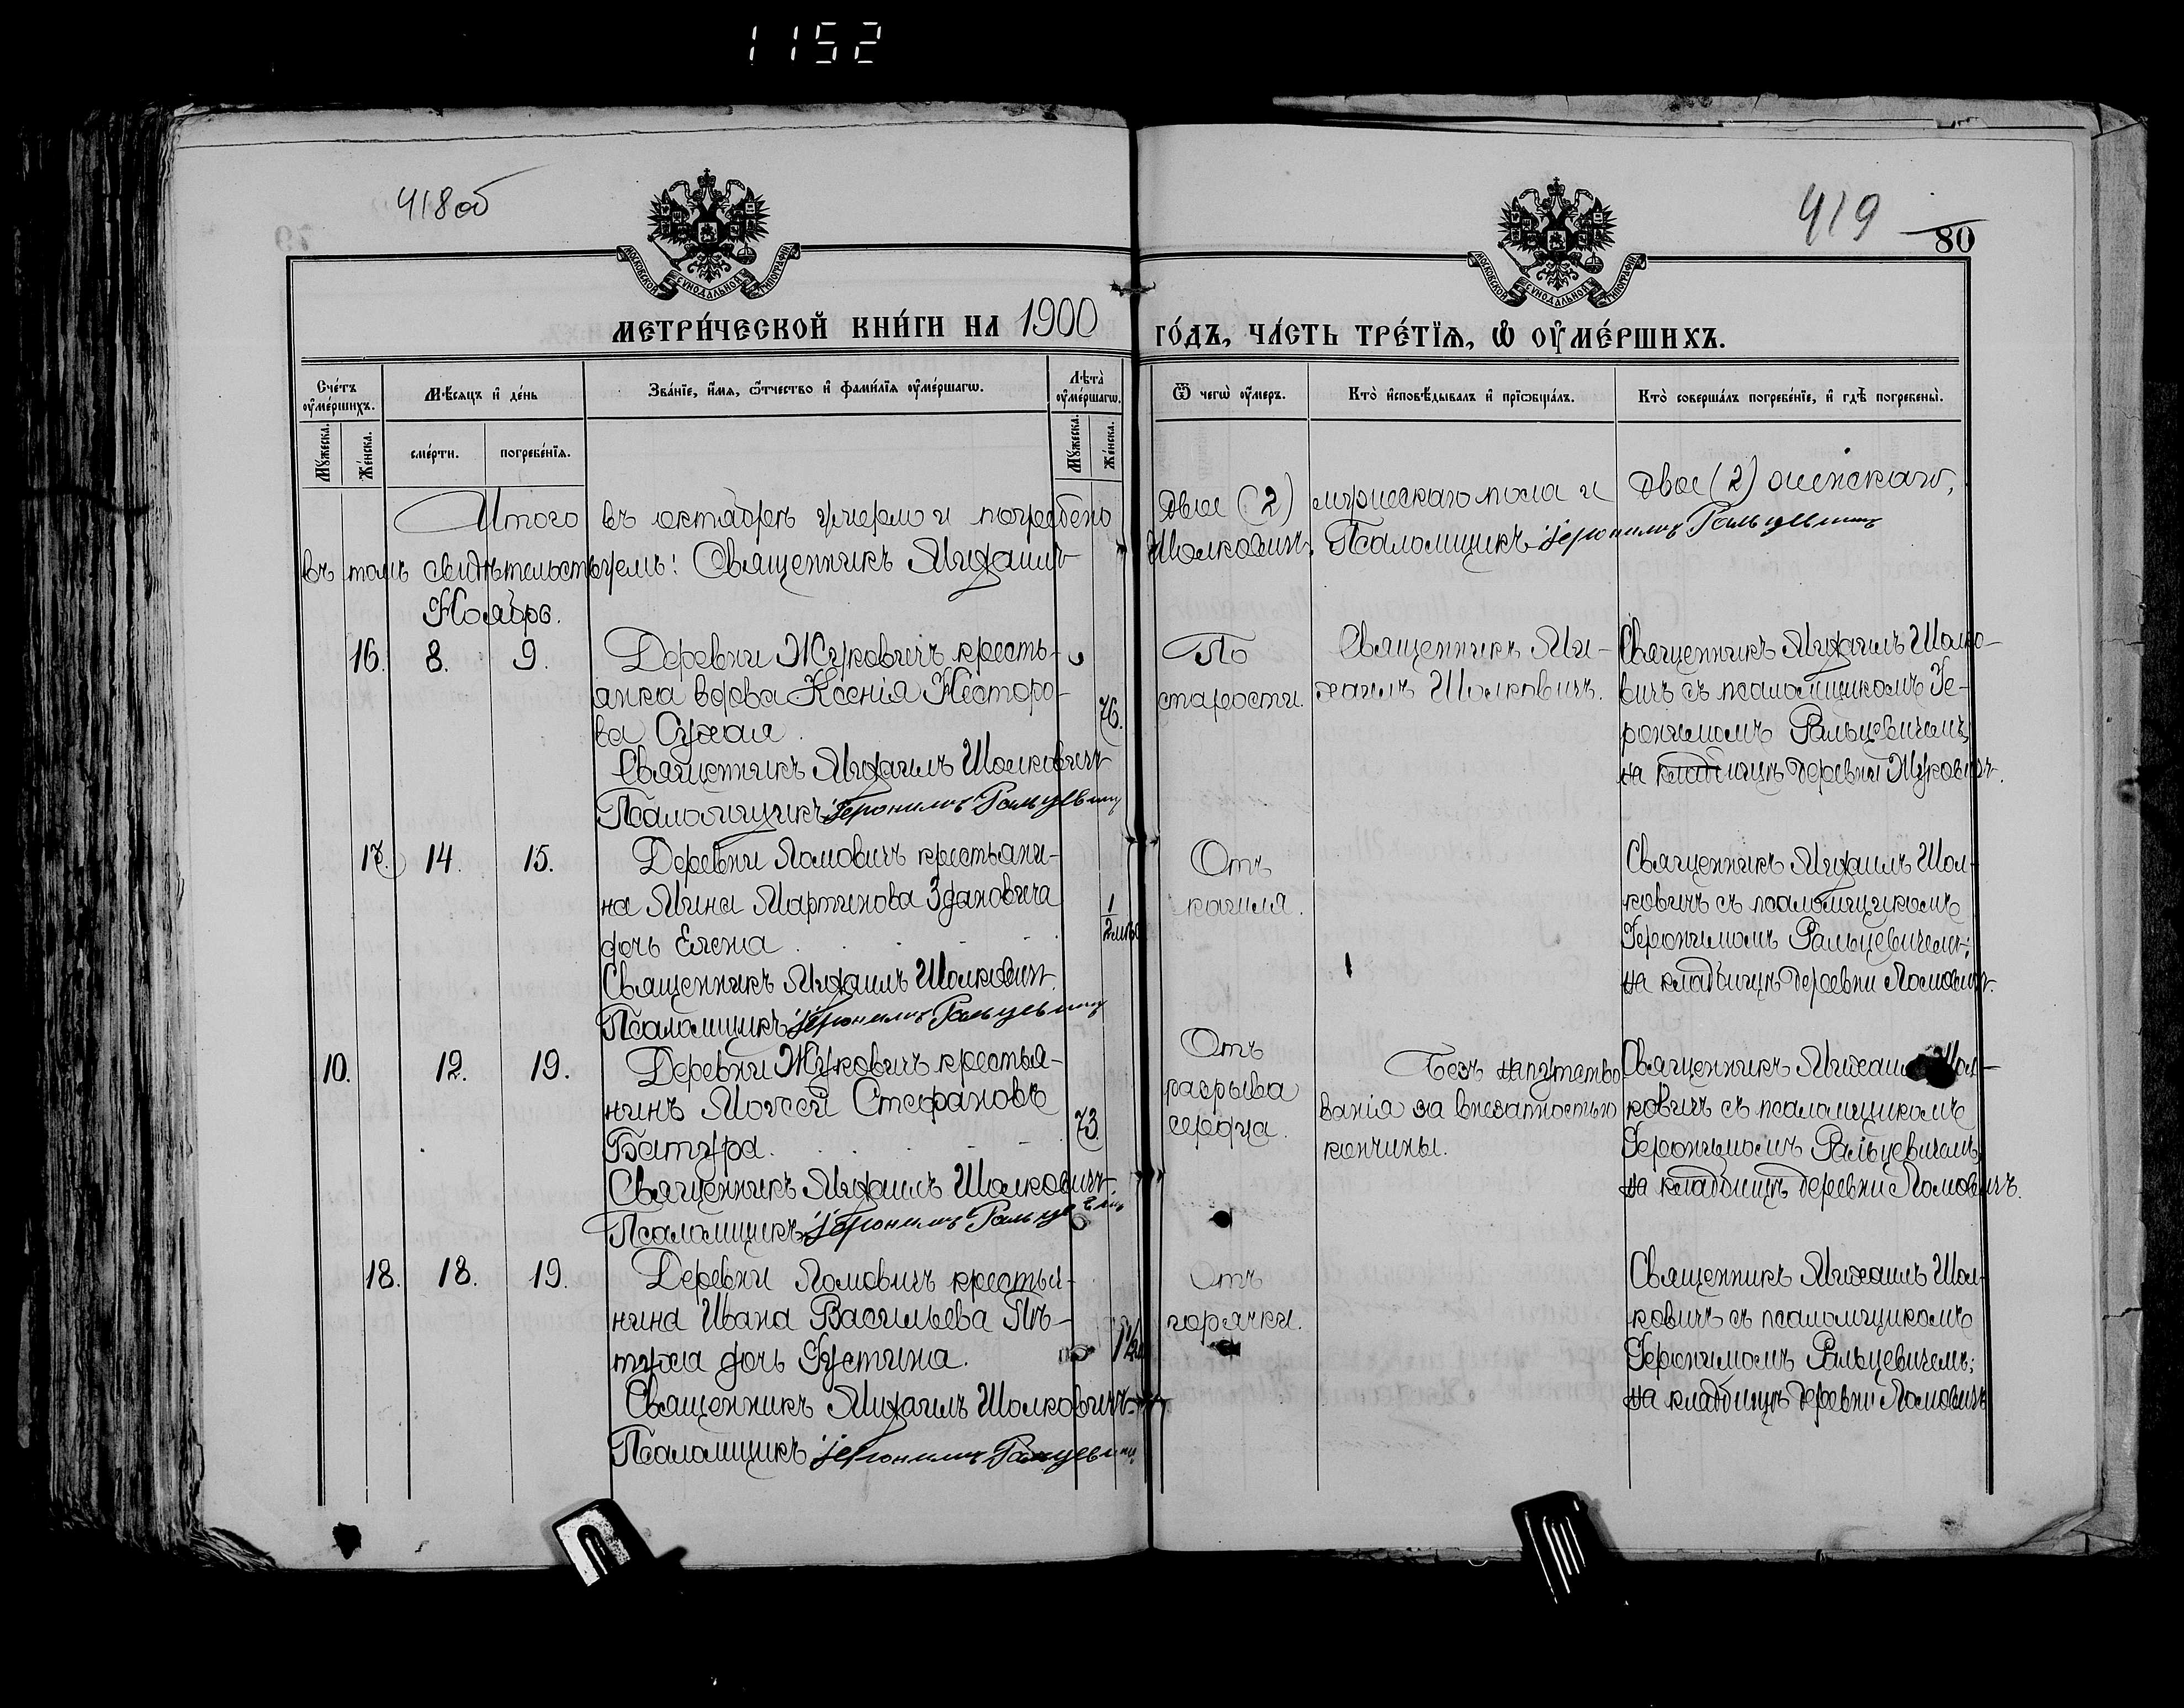 1152
418об
419
80
МОСКОВСКОЙ СУНОДАЛЬНОЙ ТИПОГРАФІИ
МОСКОВСКОЙ СУНОДАЛЬНОЙ ТИПОГРАФІИ
МЕТРИ́ЧЕСКОЙ КНИ́ГИ НА 1900 ГО́ДЪ, ЧА́СТЬ ТРЕ́ТІѦ, Ѡ҆ ОУ҆МЕ́РШИХЪ.
Сче́тъ оу҆ме́ршихъ.
Мѣ́сяцъ и҆ де́нь
Зва́нїе, и҆́мя, ѻ҆́тчество и҆ фами́лїя оу҆ме́ршагѡ.
Лѣта̀ оу҆ме́ршагѡ.
Ѿ чегѡ̀ оу҆́меръ.
Кто̀ и҆сповѣ́дывалъ и҆ прїѡбща́лъ.
Кто̀ соверша́лъ погребе́нїе, и҆ гдѣ̀ погребены̀.
Му́жеска.
Же́нска.
сме́рти.
погребе́нїя.
Му́жеска.
Же́нска.
Итого въ октябрѣ умерло и погребено двое (2) мужескаго пола и двое (2) женскаго,
въ томъ свидѣтельствуемъ: Священникъ Михаилъ Шолковичъ, Псаломщикъ Іеронимъ Ральцевичъ
Ноябрь.
16. 8. 9. Деревни Жуковичъ кресть-
янка вдова Ксенія Несторо-
ва Сухая
76.
Священникъ Михаилъ Шолковичъ
Псаломщикъ Іеронимъ Ральцевичъ
По
старости.
Священникъ Ми-
хаилъ Шолковичъ.
Священникъ Михаилъ Шолко-
вичъ съ псаломщикомъ Іе-
ронимомъ Ральцевичемъ;
на кладбищѣ деревни Жуковичъ.
17. 14. 15. Деревни Ломовичъ крестьяни-
на Мина Мартинова Здановича
дочь Елена
1/2
Священникъ Михаилъ Шолковичъ.
Псаломщикъ Іеронимъ Ральцевичъ
Отъ
кашля.
Священникъ Михаилъ Шол-
ковичъ съ псаломщикомъ
Іеронимомъ Ральцевичемъ;
на кладбищѣ деревни Ломовичъ.
10. 12. 19. Деревни Жуковичъ крестья-
нинъ Моѵсей Стефановъ
Батура.
73.
Священникъ Михаилъ Шолковичъ
Псаломщикъ Іеронимъ Ральцевичъ
Отъ
разрыва
сердца.
Безъ напутство
ванія за внезапностью
кончины.
Священникъ Михаилъ Шол-
ковичъ съ псаломщикомъ
Іеронимомъ Ральцевичемъ,
на кладбищѣ деревни Ломовичъ.
18. 18. 19. Деревни Ломовичъ крестья-
нина Ивана Васильева Пѣ-
туха дочь Іустина.
1 1/2
Священникъ Михаилъ Шолковичъ
Псаломщикъ Іеронимъ Ральцевичъ
Отъ
горячки.
Священникъ Михаилъ Шол-
ковичъ съ псаломщикомъ
Іеронимомъ Ральцевичемъ;
на кладбищѣ деревни Ломовичъ